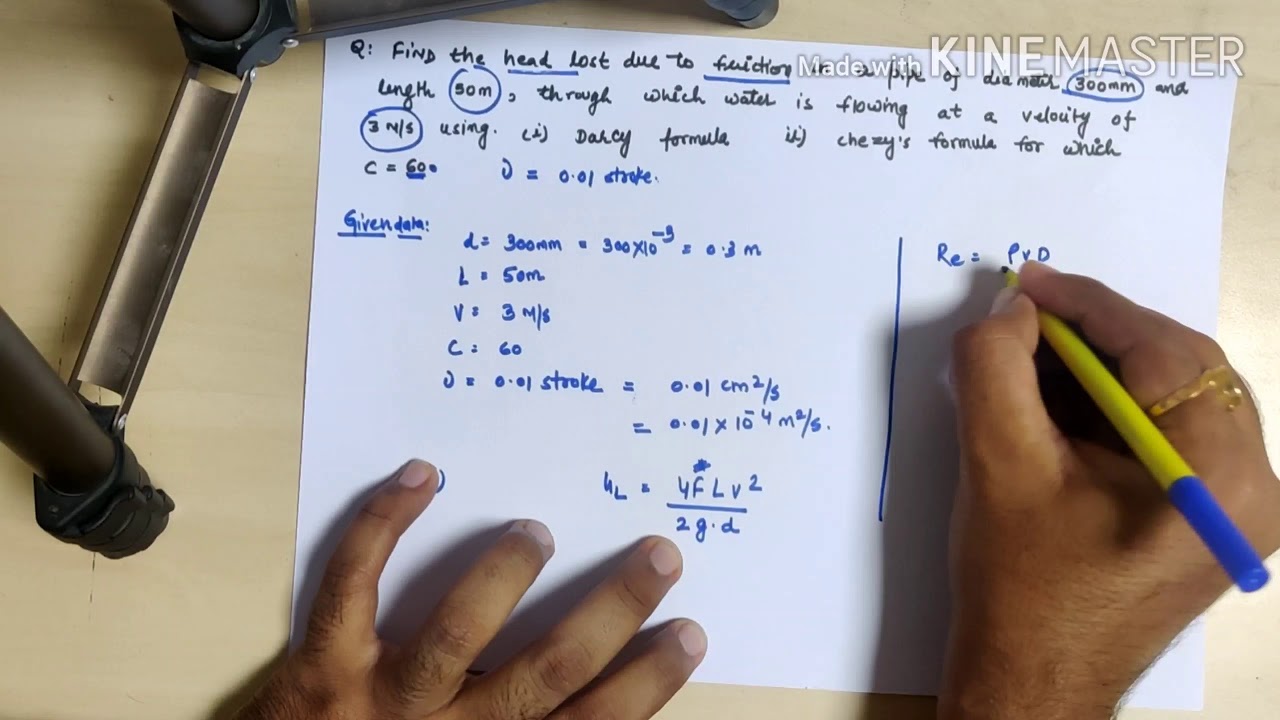 Q: Find the head lost due to friction in a pipe of diameter 300mm and
length 50m, through which water is flowing at a velocity of
3 M/s using. (i) Darcy formula ii) chezy's formula for which
C = 60. ν = 0.01 stroke.
Given data:
d = 300mm = 300×10⁻³ = 0.3 m
L = 50m
V = 3 M/s
C = 60
ν = 0.01 stroke = 0.01 cm²/s
= 0.01 × 10⁻⁴ m²/s.
) h_L = 4f* L v² / 2 g.d
Re = ρVD
Made with KINEMASTER